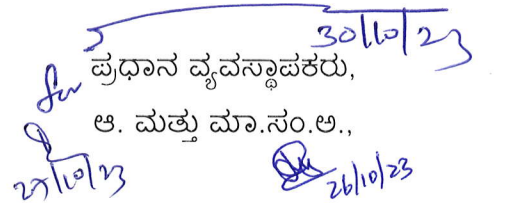 30/10/23
for ಪ್ರಧಾನ ವ್ಯವಸ್ಥಾಪಕರು,
ಆ. ಮತ್ತು ಮಾ.ಸಂ.ಅ.,
27/10/23
26/10/23